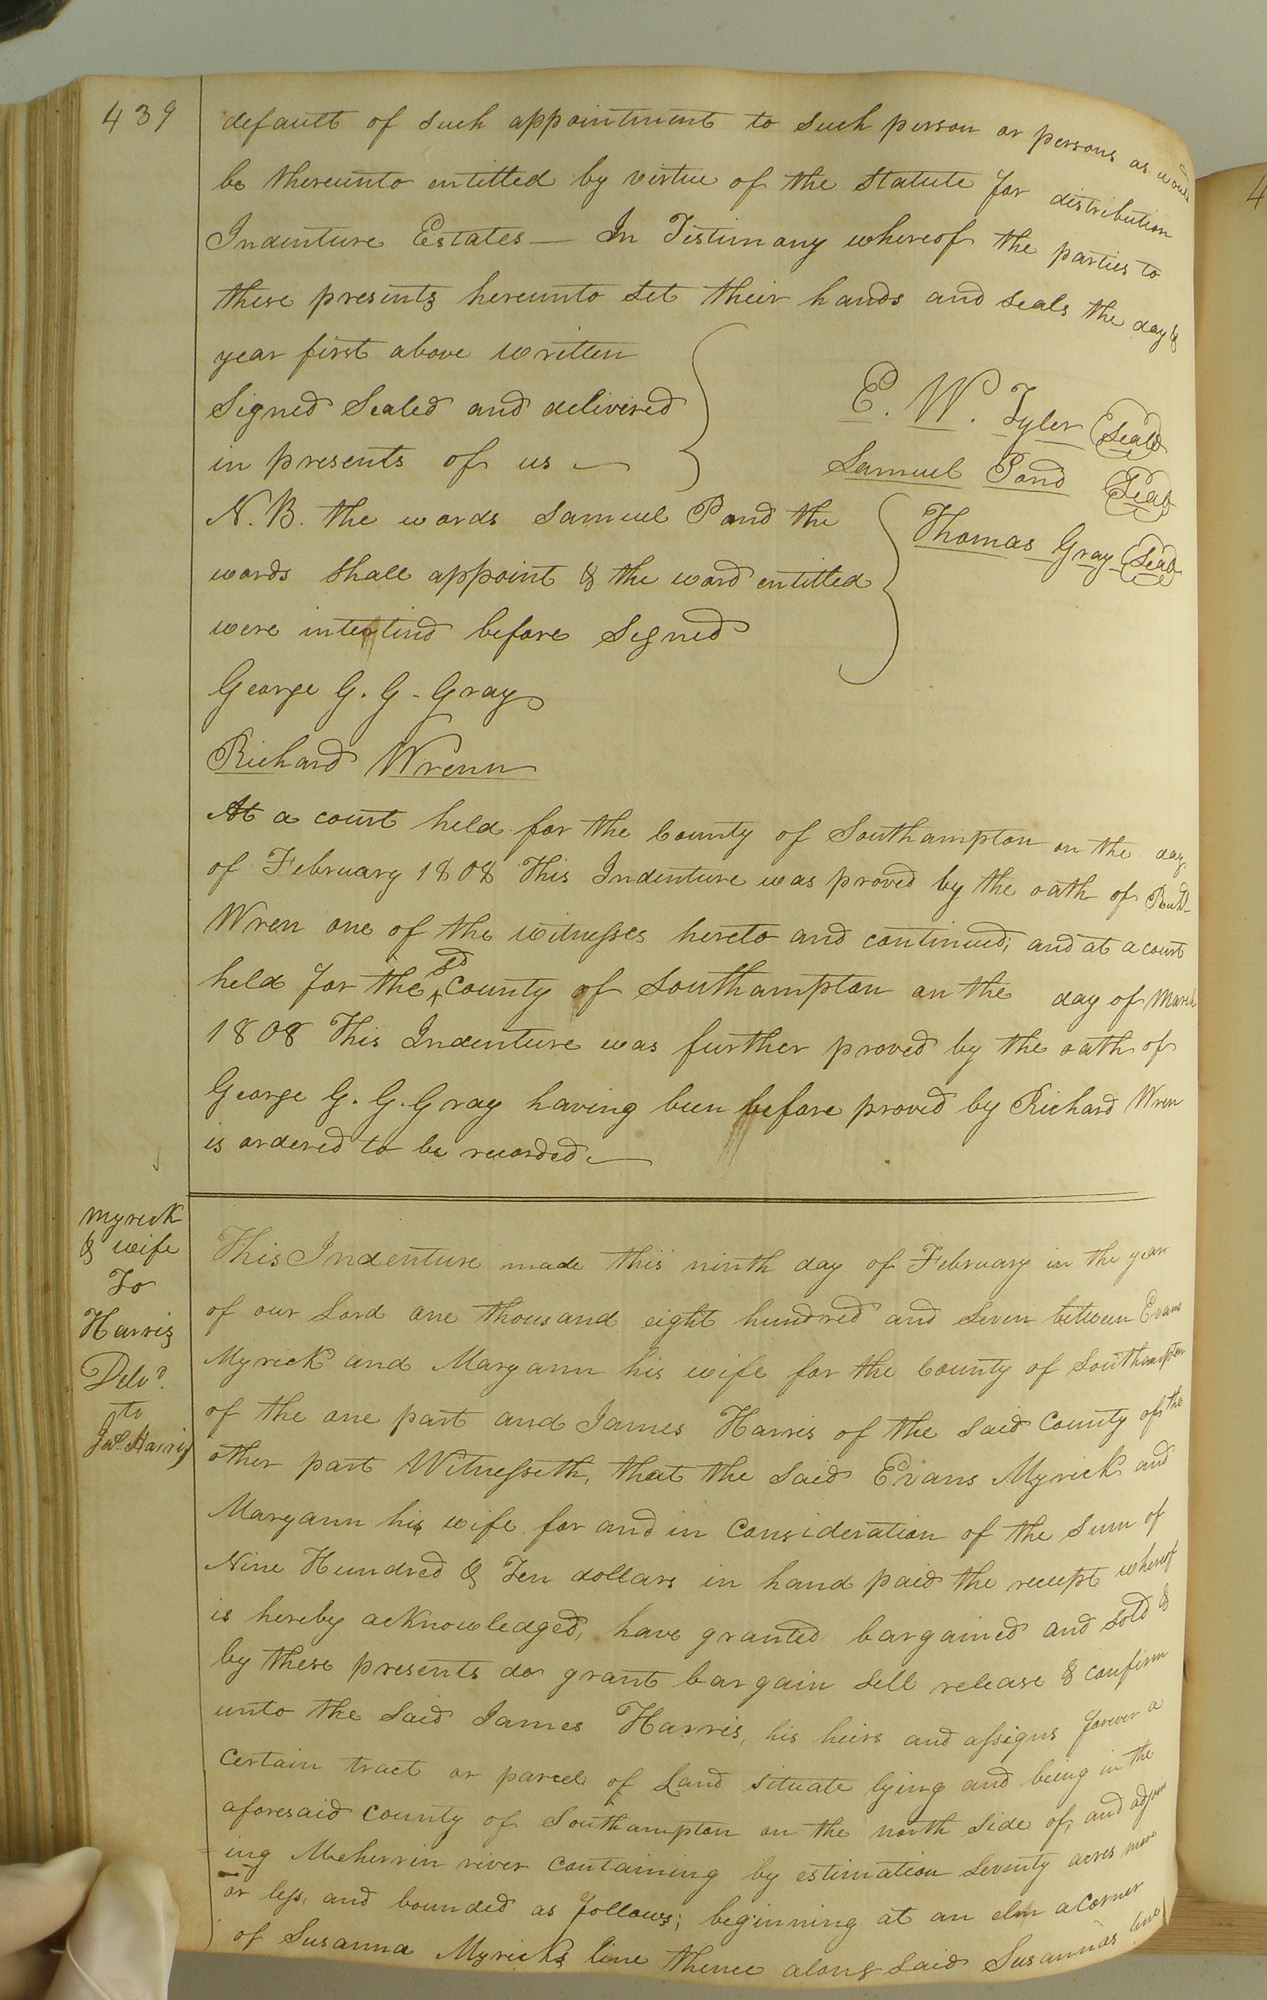 439
default of such appointment to such person or persons as would
be thereunto entitled by virtue of the statute for distribution
Indenture Estates — In Testimony whereof the parties to
these presents hereunto set their hands and seals the day &
year first above written
Signed Sealed and delivered
in presents of us —
E. W. Tyler Seal
Samuel Pond Seal
Thomas Gray Seal
N. B. the words Samuel Pond the
words shall appoint & the word entitled
were interlind before signed
George G. G. Gray
Richard Wrenn
At a court held for the County of Southampton on the day
of February 1808 This Indenture was proved by the oath of Richd
Wren one of the witnesses hereto and continued; and at a court
held for the sd County of Southampton on the day of March
1808 This Indenture was further proved by the oath of
George G. G. Gray having been before proved by Richard Wren
is ordered to be recorded. —
Myrick
& wife
To
Harris
Delvd.
to
Jas. Harris
This Indenture made this ninth day of February in the year
of our Lord one thousand eight hundred and seven between Evans
Myrick and Maryann his wife for the County of Southampton
of the one part and James Harris of the said County of the
other part Witnesseth, that the said Evans Myrick and
Maryann his wife for and in Consideration of the sum of
Nine Hundred & Ten dollars in hand paid the receipt whereof
is hereby acknowledged, have granted bargained and sold &
by these presents do grant bargain sell release & confirm
unto the said James Harris, his heirs and assigns forever a
certain tract or parcel of Land situate lying and being in the
aforesaid County of Southampton on the north side of, and adjoin
ing Meherrin river containing by estimation seventy acres more
or less, and bounded as follows; beginning at an elm a corner
of Susanna Myricks line thence along said Susannas line